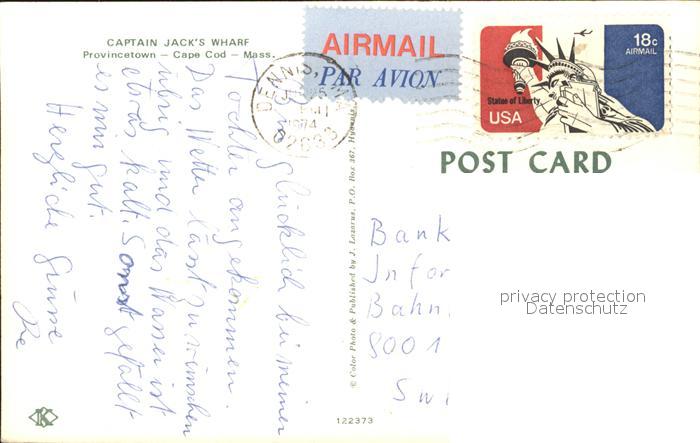 CAPTAIN JACK'S WHARF
Provincetown — Cape Cod — Mass.
AIRMAIL
PAR AVION
DENNIS, MA
1974
02638
18c
AIRMAIL
Statue of Liberty
USA
POST CARD
Bin glücklich bei meiner
Tochter angekommen.
Das Wetter lässt zu wünschen
übrig und das Wasser ist
etwas kalt. Sonst gefällt
es mir gut.
Herzliche Grüsse
© Color Photo & Published by J. Lazarus, P.O. Box 367, Hyannis,
Bank
Infor
Bahn
8001
Swi
privacy protection
Datenschutz
K
122373